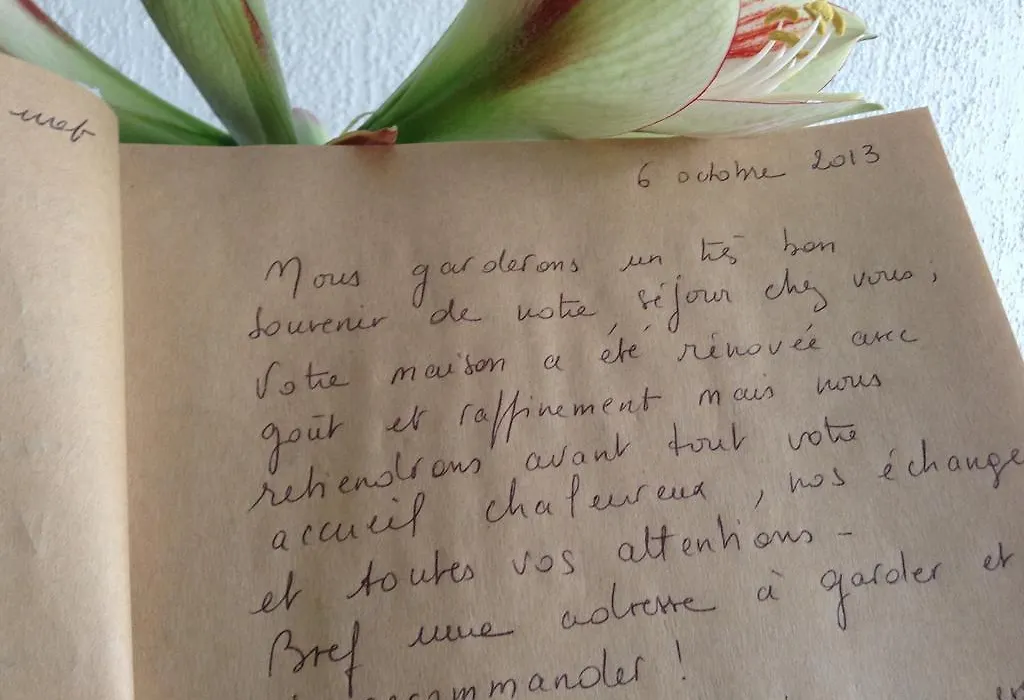 6 octobre 2013
Nous garderons un très bon
souvenir de notre séjour chez vous,
Votre maison a été rénovée avec
goût et raffinement mais nous
retiendrons avant tout votre
accueil chaleureux, nos échange
et toutes vos attentions -
Bref une adresse à garder et
commander !